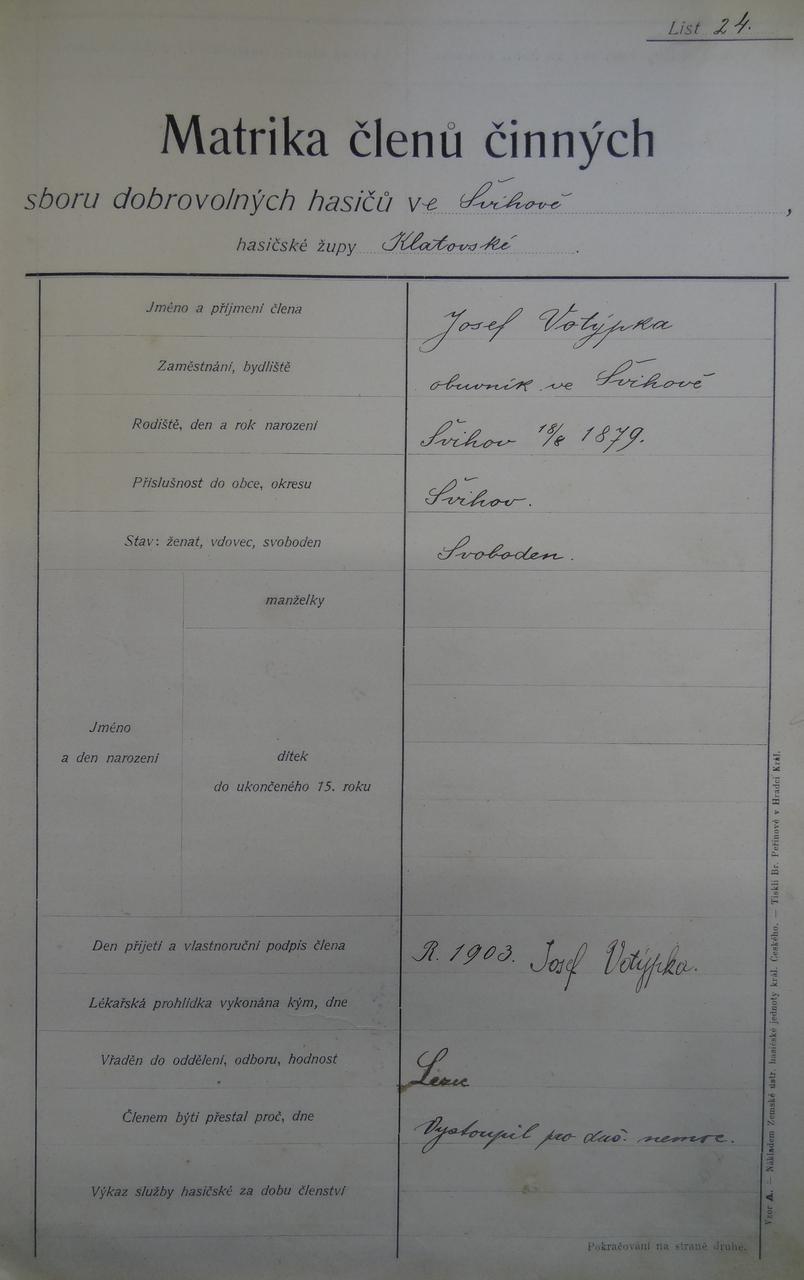 List 24.
Matrika členů činných
sboru dobrovolných hasičů ve Švihově,
hasičské župy Klatovské.
Jméno a příjmení člena Josef Votýpka
Zaměstnání, bydliště obuvník ve Švihově
Rodiště, den a rok narození Švihov 18/8 1879.
Příslušnost do obce, okresu Švihov.
Stav: ženat, vdovec, svoboden Svoboden.
manželky
Jméno
a den narození
dítek
do ukončeného 15. roku
Den přijetí a vlastnoruční podpis člena R. 1903. Josef Votýpka.
Lékařská prohlídka vykonána kým, dne
Vřaděn do oddělení, odboru, hodnost
Členem býti přestal proč, dne Vystoupil pro duš. nemoc.
Výkaz služby hasičské za dobu členství
Pokračování na straně druhé.
Vzor A. — Nákladem Zemské ústř. hasičské jednoty král. Českého. — Tiskli Br. Peřinové v Hradci Král.